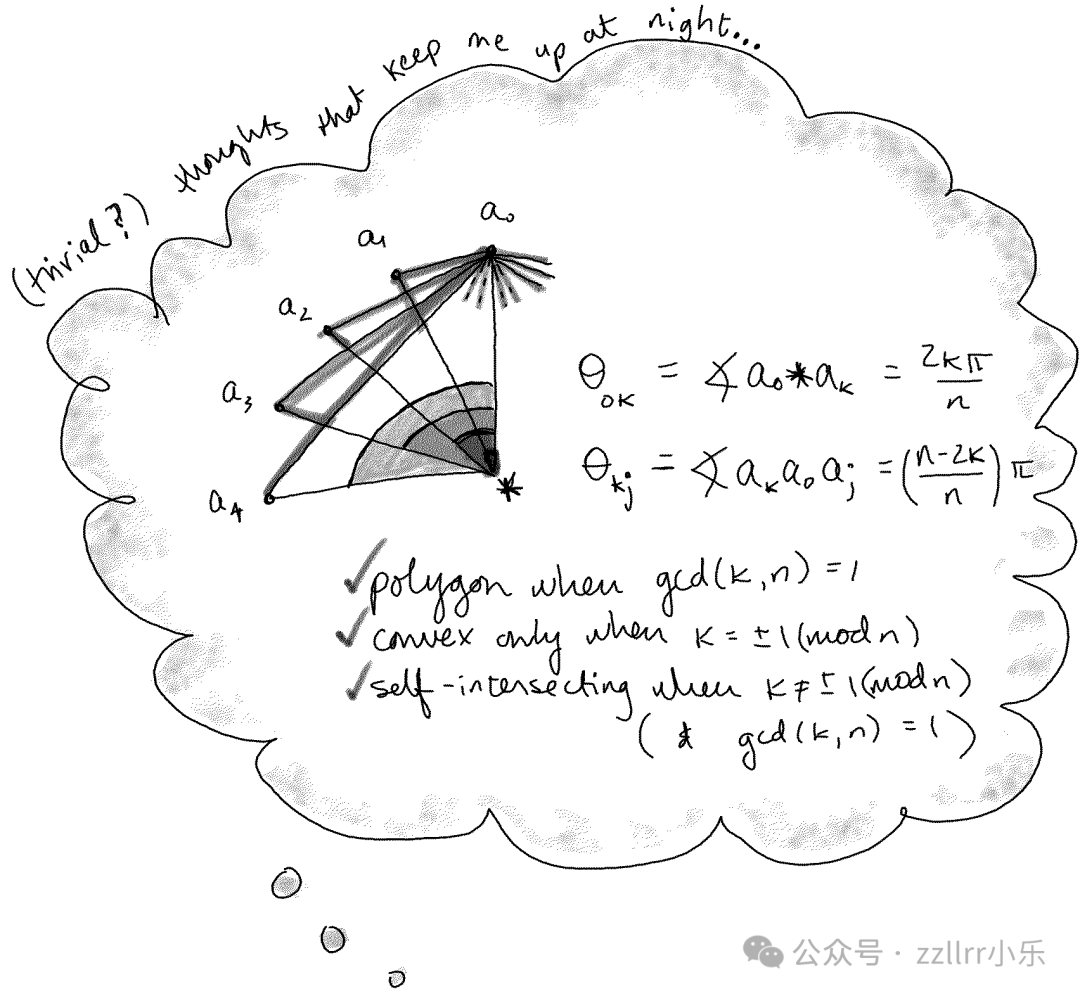 (trivial?) thoughts that keep me up at night...
a₀
a₁
a₂
a₃
a₄
*
θ₀ₖ = ∢ a₀ * aₖ = 2kπ/n
θₖⱼ = ∢ aₖ a₀ aⱼ = (n-2k/n) π
✓ polygon when gcd(k,n) = 1
✓ convex only when k = ±1(mod n)
✓ self-intersecting when k ≠ ±1(mod n)
( & gcd(k,n) = 1 )
公众号 · zzllrr小乐